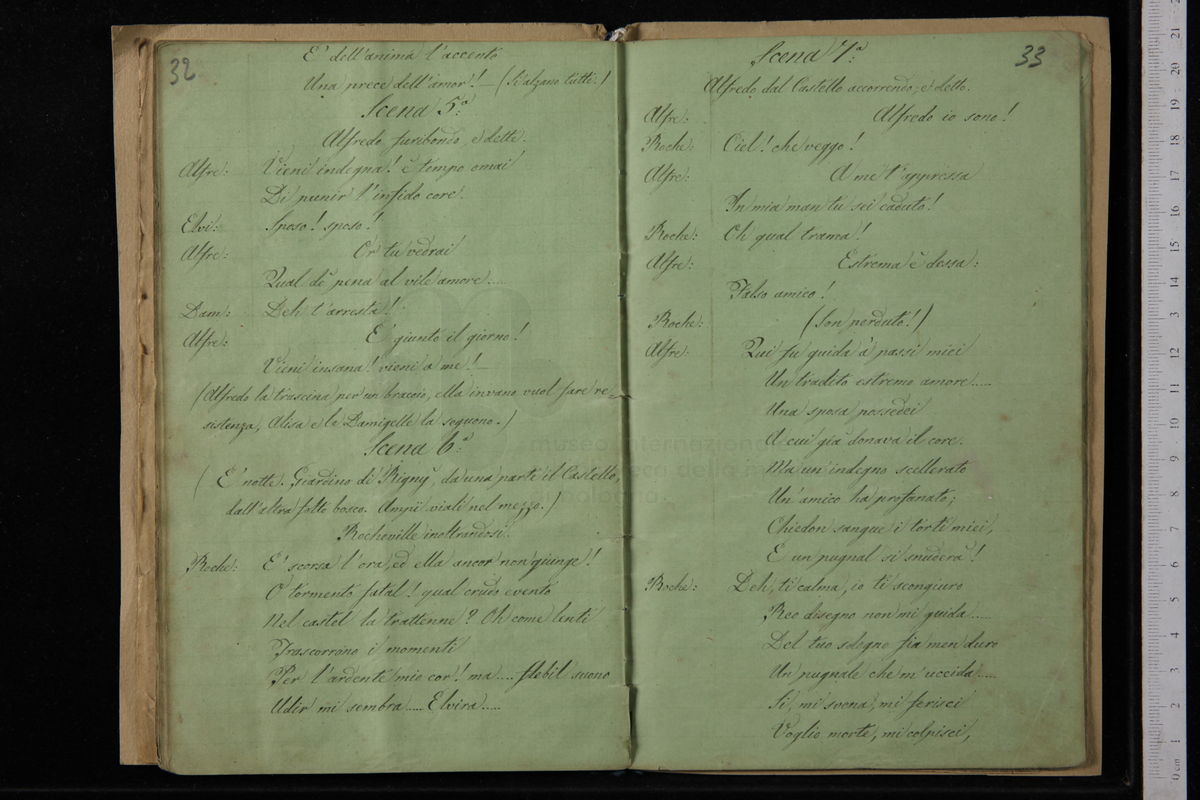 32
E' dell'anima l'accento
Una prece dell'amor! — (Si alzano tutti.)
Scena 5ª:
Alfredo furibondo, e dette.
Alfre: Vieni indegna! è tempo omai
Di punir l'infido core.
Elvi: Sposo! sposo!
Alfre: Or tu vedrai
Qual dò pena al vile amore.....
Dam: Deh t'arresta!
Alfre: E' giunto il giorno!
Vieni insana! vieni a me! —
(Alfredo la trascina per un braccio, ella invano vuol fare re-
sistenza, Alisa e le Damigelle la seguono.)
Scena 6ª:
(E' notte. Giardino di Rigny, da una parte il Castello,
dall'altra folto bosco. Ampi viali nel mezzo.)
Rocheville inoltrandosi.
Roche: E' scorsa l'ora, ed ella ancor non giunge!
O tormento fatal! qual crudo evento
Nel castel la trattenne? Oh come lenti
Trascorrono i momenti
Per l'ardente mio cor! ma.... flebil suono
Udir mi sembra..... Elvira.....
33
Scena 7ª:
Alfredo dal Castello accorrendo, e detto.
Alfre: Alfredo io sono!
Roche: Ciel! che veggo!
Alfre: A me t'appressa
In mia man tu sei caduto!
Roche: Oh qual trama!
Alfre: Estrema è dessa:
Falso amico!
Roche: (Son perduto!)
Alfre: Qui fu guida a' passi miei
Un tradito estremo amore.....
Una sposa possedei
A cui già donava il core.
Ma un'indegno scellerato
Un'amico ha profanato;
Chiedon sangue i torti miei,
E un pugnal si snuderà!
Roche: Deh, ti calma, io ti scongiuro
Reo disegno non mi guida.....
Del tuo sdegno fia men duro
Un pugnale che m'uccida.....
Si, mi svena, mi ferisci
Voglio morte, mi colpisci,
museo internazionale